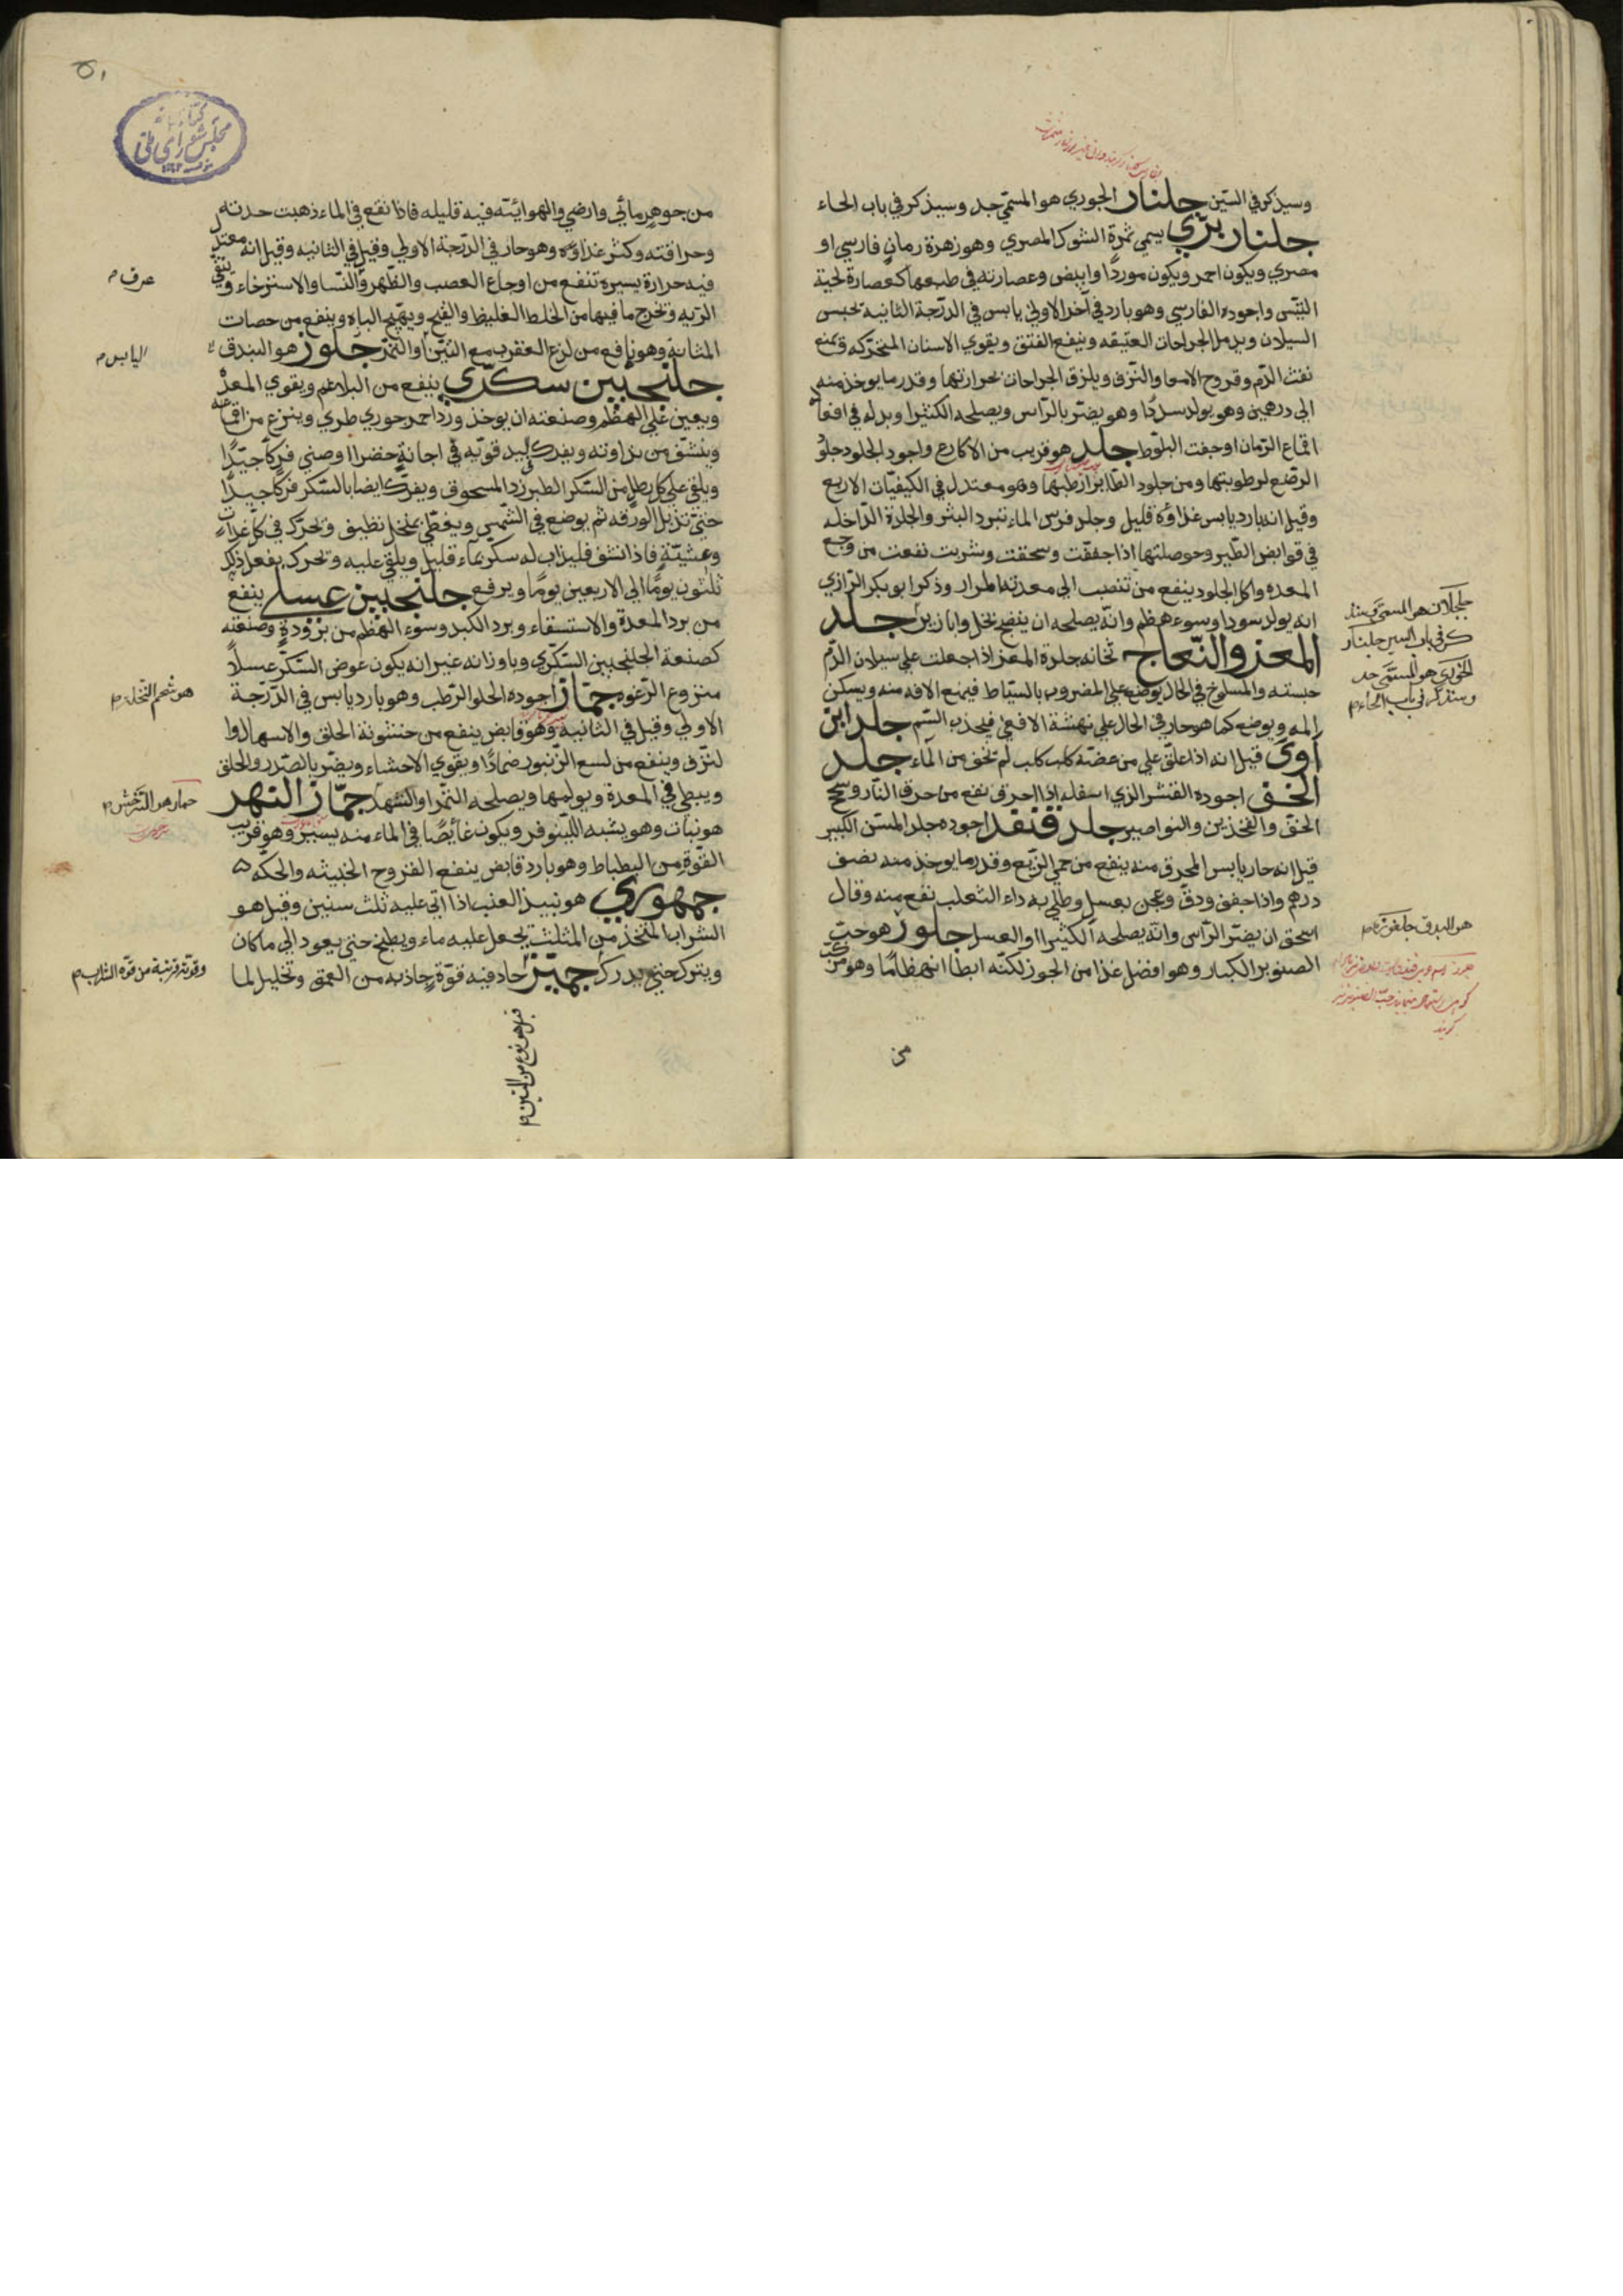 وسيذكر في السين جلنار الجوري هو المسمي جد وسيذكر في باب الحاء
جلنار بري يسمى ثمرة الشوك المصري وهو زهرة رمان فارسي او
مصري ويكون احمر ويكون موردا وابيض وعصارته في طبعها كعصارة لحية
التيس واجوده الفارسي وهو بارد في آخر الاولي يابس في الدرجة الثانية تحبس
السيلان ويدمل الجراحات العتيقه وينفع الفتق ويقوي الاسنان المتحركه ويمنع
نفث الدم وقروح الامعا والنزف ويلزق الجراحات بحرارتها وقدر ما يوخذ منه
الي درهمين وهو يولد سددا وهو يضر بالراس ويصلحه الكثيرا وبدله في افعاله
اقماع الرمان او جفت البلوط جلد هو قريب من الاكارع واجود الجلود جلود
الرضع لرطوبتها ومن جلود الطاير ارطبها وهو معتدل في الكيفيات الاربع
وقيل انه بارد يابس غذاؤه قليل وجلد فرس الماء تبرد البثر والجلدة الداخله
في قوابض الطير وحوصلتها اذا جففت وسحقت وشربت نفعت من وجع
المعده واكل الجلود ينفع من تنصب الي معدته المرار وذكر ابو بكر الرازي
انه يولد سودا وسوء هضم وانه يصلحه ان ينضج بخل وابازير جلد
المعز والنعاج تخانه جلدة المعز اذا جعلت علي سيلان الدم
حبسته والمسلوخ في الحال يوضع علي المضروب بالسياط فيمنع الافه منه ويسكن
المه ويوضع كما هو حار في الحال علي نهشة الافعي فيجذب السم جلد ابن
آوي قيل انه اذا علق علي من عضه كلب كلب لم تخف من الماء جلد
الخف اجوده القشر الذي اسفله اذا احرق نفع من حرق النار وسحج
الخف والفخذين والنواصير جلد قنفد اجوده جلد المسن الكبير
قيل انه حار يابس المحرق منه ينفع من حمي الربع وقدر ما يوخذ منه نصف
درهم واذا جفف ودق وعجن بعسل وطلي به داء الثعلب نفع منه وقال
اسحق ان يضر الراس وانه يصلحه الكثيرا او العسل جلوز هو حب
الصنوبر الكبار وهو افضل غذا من الجوز لكنه ابطا انهضاما وهو مركب
من
جلجلان هو السمسم وسيذ
كر في باب السين جلنار
الجوري هو المسمي جد
وسنذكره في باب الحاء م
هو البندق
من جوهر مائي وارضي والهوائيته فيه قليله فاذا نقع في الماء ذهبت حدته
وحرافته وكثر غذاؤه وهو حار في الدرجة الاولي وقيل في الثانيه وقيل انه معتدل
فيه حرارة يسيرة تنفع من اوجاع العصب والظهر والنسا والاسترخاء وتنقي
الريه وتخرج ما فيها من الخلط الغليظ والقيح ويهيج الباه وينفع من حصات
المثانة وهو نافع من لزع العقرب مع التين او التمر جلوز هو البندق
جلنجبين سكري ينفع من البلاغم ويقوي المعدة
ويعين علي الهضم وصنعته ان يوخذ ورد احمر جوري طري وينزع من اقماعه
وينشف من نداوته ويفرك بيد قويه في اجانة خضرا او صيني فركا جيدا
ويلقي علي كل رطل من السكر الطبرزد المسحوق ويفرك ايضا بالسكر فركا جيدا
حتي تذبل الورقه ثم يوضع في الشمس ويغطي بمنخل نظيف وتحرك في كل غداة
وعشية فاذا نشف فليذاب له سكر بماء قليل ويلقي عليه وتحرك يفعل ذلك
ثلثون يوما الي الاربعين يوما ويرفع جلنجبين عسلي ينفع
من برد المعدة والاستسقاء وبرد الكبد وسوء الهضم من برودة وصنعته
كصنعة الجلنجبين السكري وباوزانه غير انه يكون عوض السكر عسلا
منزوع الرغوه جمار اجوده الحلو الرطب وهو بارد يابس في الدرجة
الاولي وقيل في الثانيه وهو قابض ينفع من خشونة الحلق والاسهال وا
لنزف وينفع من لسع الزنبور ضمادا ويقوي الاحشاء ويضر بالصدر والحلق
ويبطي في المعدة ويولمها ويصلحه التمر او الشهد جمار النهر
هو نبات وهو يشبه اللينوفر ويكون غائصا في الماء منه يسير وهو قريب
القوة من البطباط وهو بارد قابض ينفع القروح الخبيثه والحكه
جمهوري هو نبيذ العنب اذا اتي عليه ثلث سنين وقيل هو
الشراب المتخذ من المثلث يجعل عليه ماء ويطبخ حتي يعود الي ما كان
ويترك حتي يدرك جميز حاد فيه قوة جاذبه من العمق وتحليل لما
عرف م
اليابس م
هو شحم النخلة م
وقوته قريبة من قوة الشراب م
قيل هو نوع من التين م
كتابخانه
مجلس شورای ملی
٥١